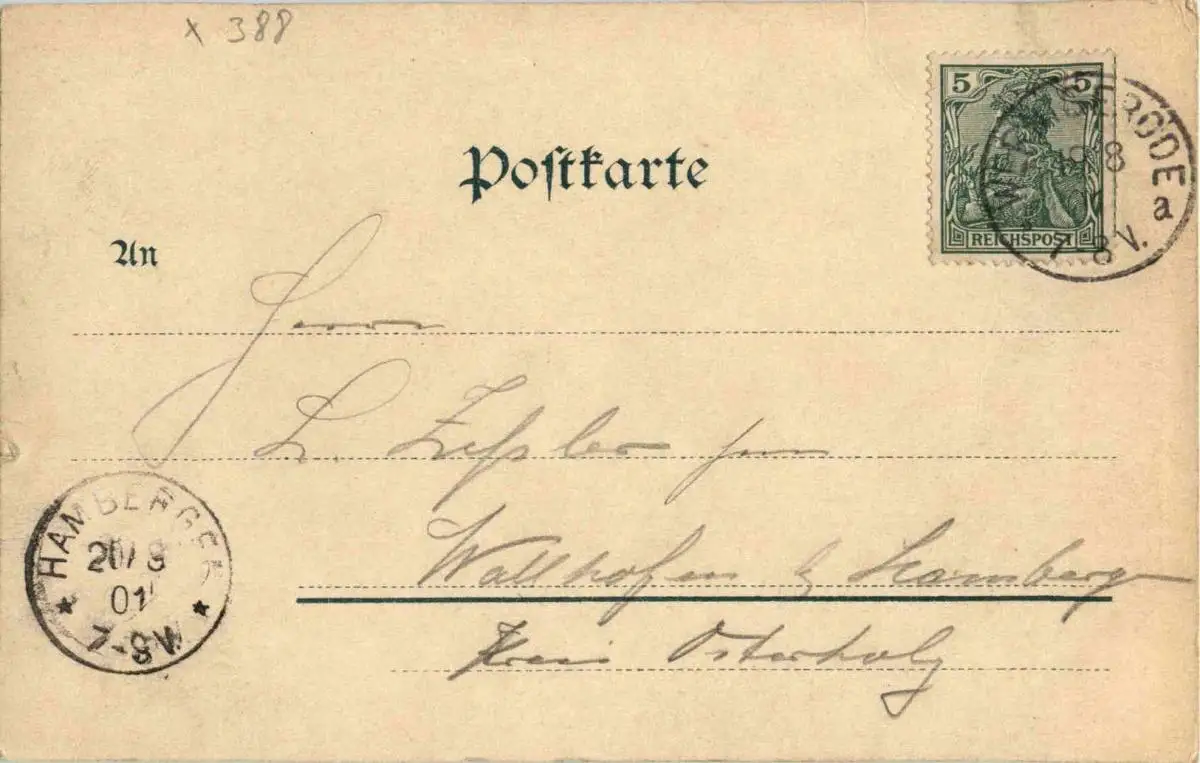 x 388
5 5
REICHSPOST
WERNIGERODE
8
a
7-8 V.
Postkarte
An
Herrn
L.
Wallhofen b Hambergen
Kreis Osterholz
HAMBERGEN
20/8
01
7-8 V.